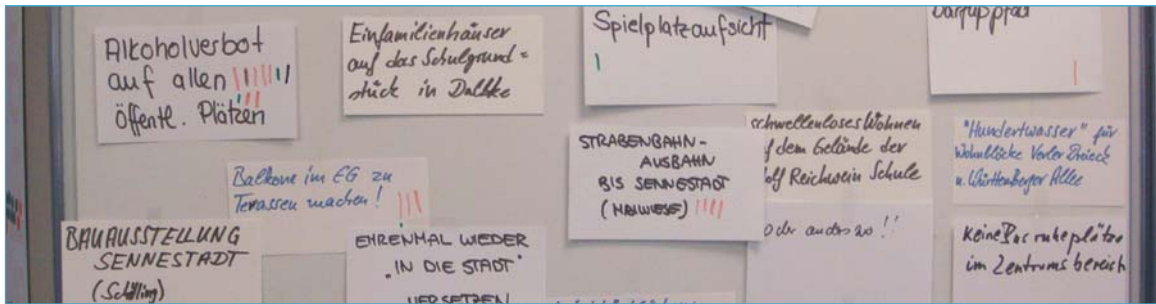 Alkoholverbot
auf allen
öffentl. Plätzen
Einfamilienhäuser
auf das Schulgrund=
stück in Dalbke
Spielplatzaufsicht
Barfußpfad
Balkone im EG zu
Terassen machen!
STRAßENBAHN-
AUSBAHN
BIS SENNESTADT
(MAIWIESE)
schwellenloses Wohnen
auf dem Gelände der
Adolf Reichwein Schule
oder anderswo!!
"Hundertwasser" für
Wohnblöcke Verler Dreieck
u. Württemberger Allee
BAUAUSSTELLUNG
SENNESTADT
(Schilling)
EHRENMAL WIEDER
"IN DIE STADT"
VERSETZEN
Keine Busruheplätze
im Zentrumsbereich